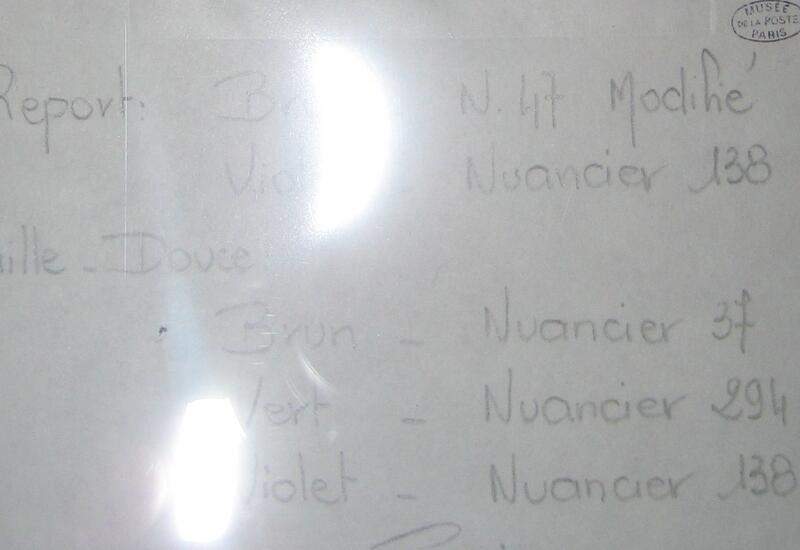 MUSÉE
DE LA POSTE
PARIS
Report: N. 47 Modifié
Nuancier 138
Douce:
Brun - Nuancier 37
Vert - Nuancier 294
Violet - Nuancier 138